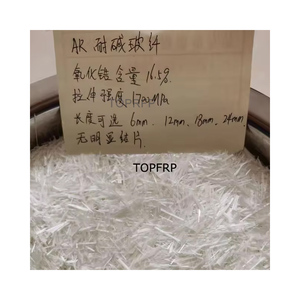 AR 耐碱玻纤
氧化锆含量 16.5%
拉伸强度 1700MPa
TOPFRP
长度可选 6mm、12mm、18mm、24mm、
无明显结片
TOPFRP